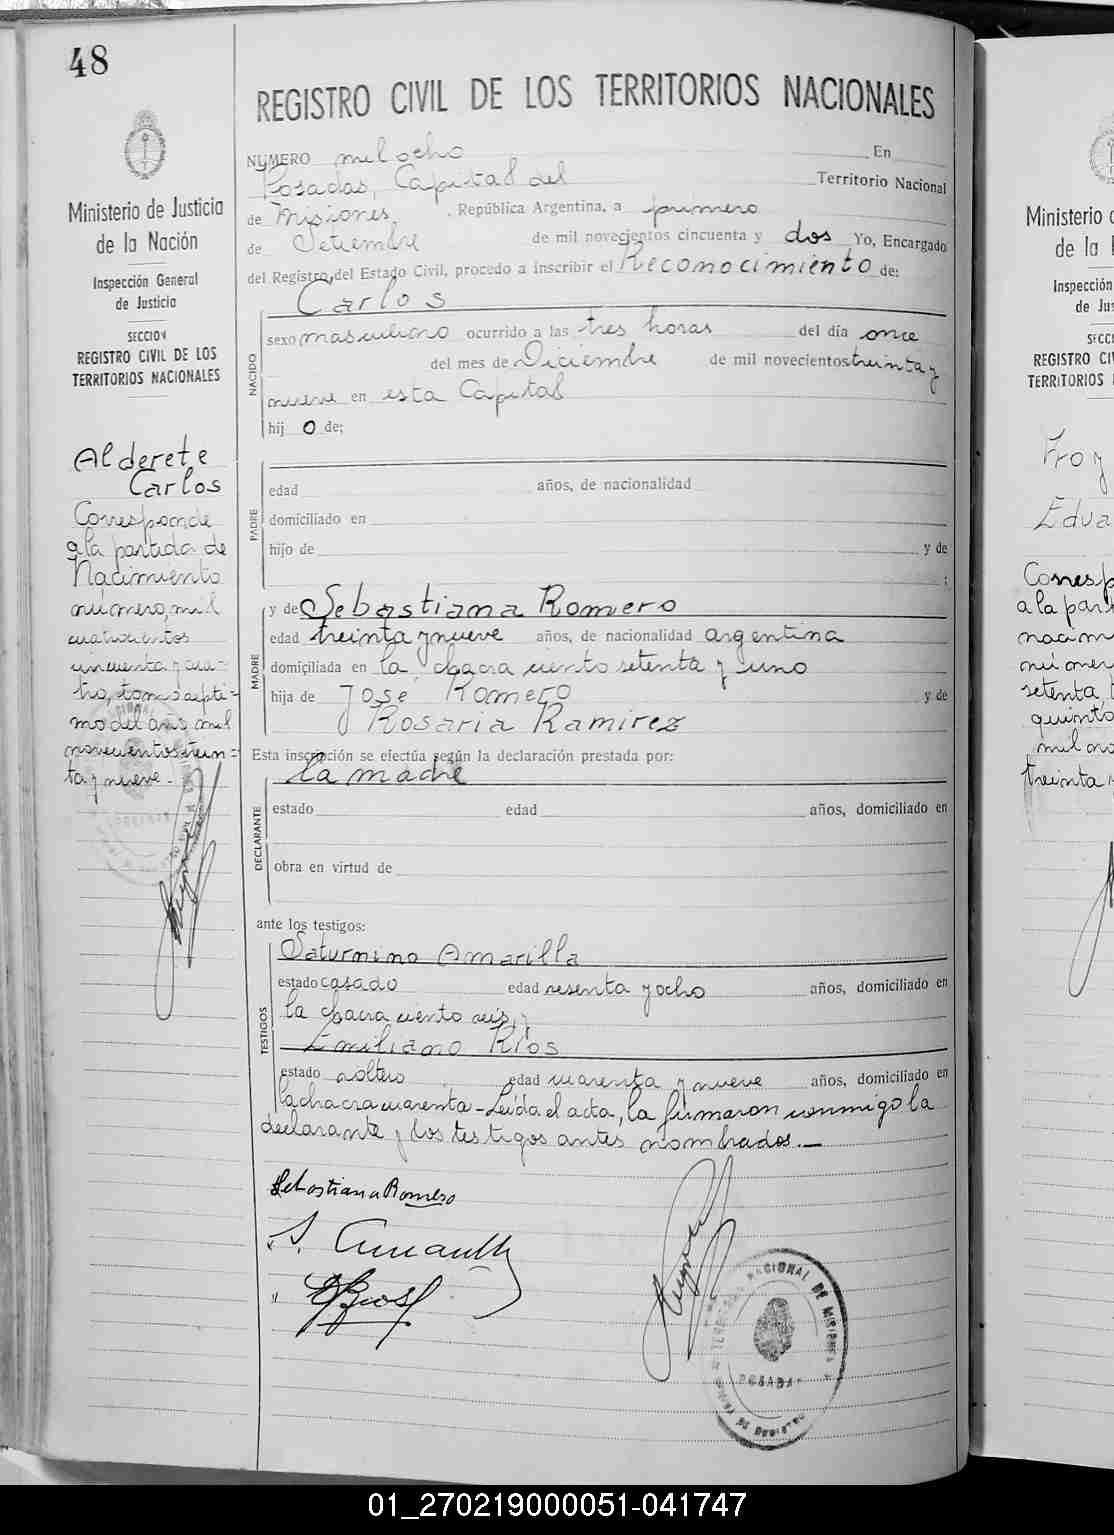 48
REGISTRO CIVIL DE LOS TERRITORIOS NACIONALES
NUMERO mil ocho En
Posadas, Capital del Territorio Nacional
de Misiones, República Argentina, a primero
de Setiembre de mil novecientos cincuenta y dos Yo, Encargado
del Registro del Estado Civil, procedo a inscribir el Reconocimiento de:
Carlos
NACIDO
sexo masculino ocurrido a las tres horas del día once
del mes de Diciembre de mil novecientos treinta y
nueve en esta Capital
hij o de;
PADRE
edad años, de nacionalidad
domiciliado en
hijo de y de
;
MADRE
y de Sebastiana Romero
edad treinta y nueve años, de nacionalidad argentina
domiciliada en la chacra ciento setenta y uno
hija de José Romero y de
Rosaria Ramirez
Esta inscripción se efectúa según la declaración prestada por:
la madre
DECLARANTE
estado edad años, domiciliado en
obra en virtud de
ante los testigos:
TESTIGOS
Saturnino Amarilla
estado casado edad sesenta y ocho años, domiciliado en
la chacra ciento seis, y
Emiliano Rios
estado soltero edad cuarenta y nueve años, domiciliado en
la chacra cuarenta - Leída el acta, la firmaron conmigo la
declarante y los testigos antes nombrados.-
Sebastiana Romero
TERRITORIO NACIONAL DE MISIONES
POSADAS
Ministerio de Justicia
de la Nación
Inspección General
de Justicia
SECCION
REGISTRO CIVIL DE LOS
TERRITORIOS NACIONALES
Alderete
Carlos
Corresponde
a la partida de
Nacimiento
número, mil
cuatrocientos
cincuenta y cua=
tro, tomo septi=
mo del año mil
novecientos trein=
ta y nueve.-
Ministerio d
de la
Inspección
de Jus
SECC
REGISTRO CIV
TERRITORIOS
Edua
Corresp
a la part
nacim
númer
setenta
quinto
mil no
treinta
01_270219000051-041747